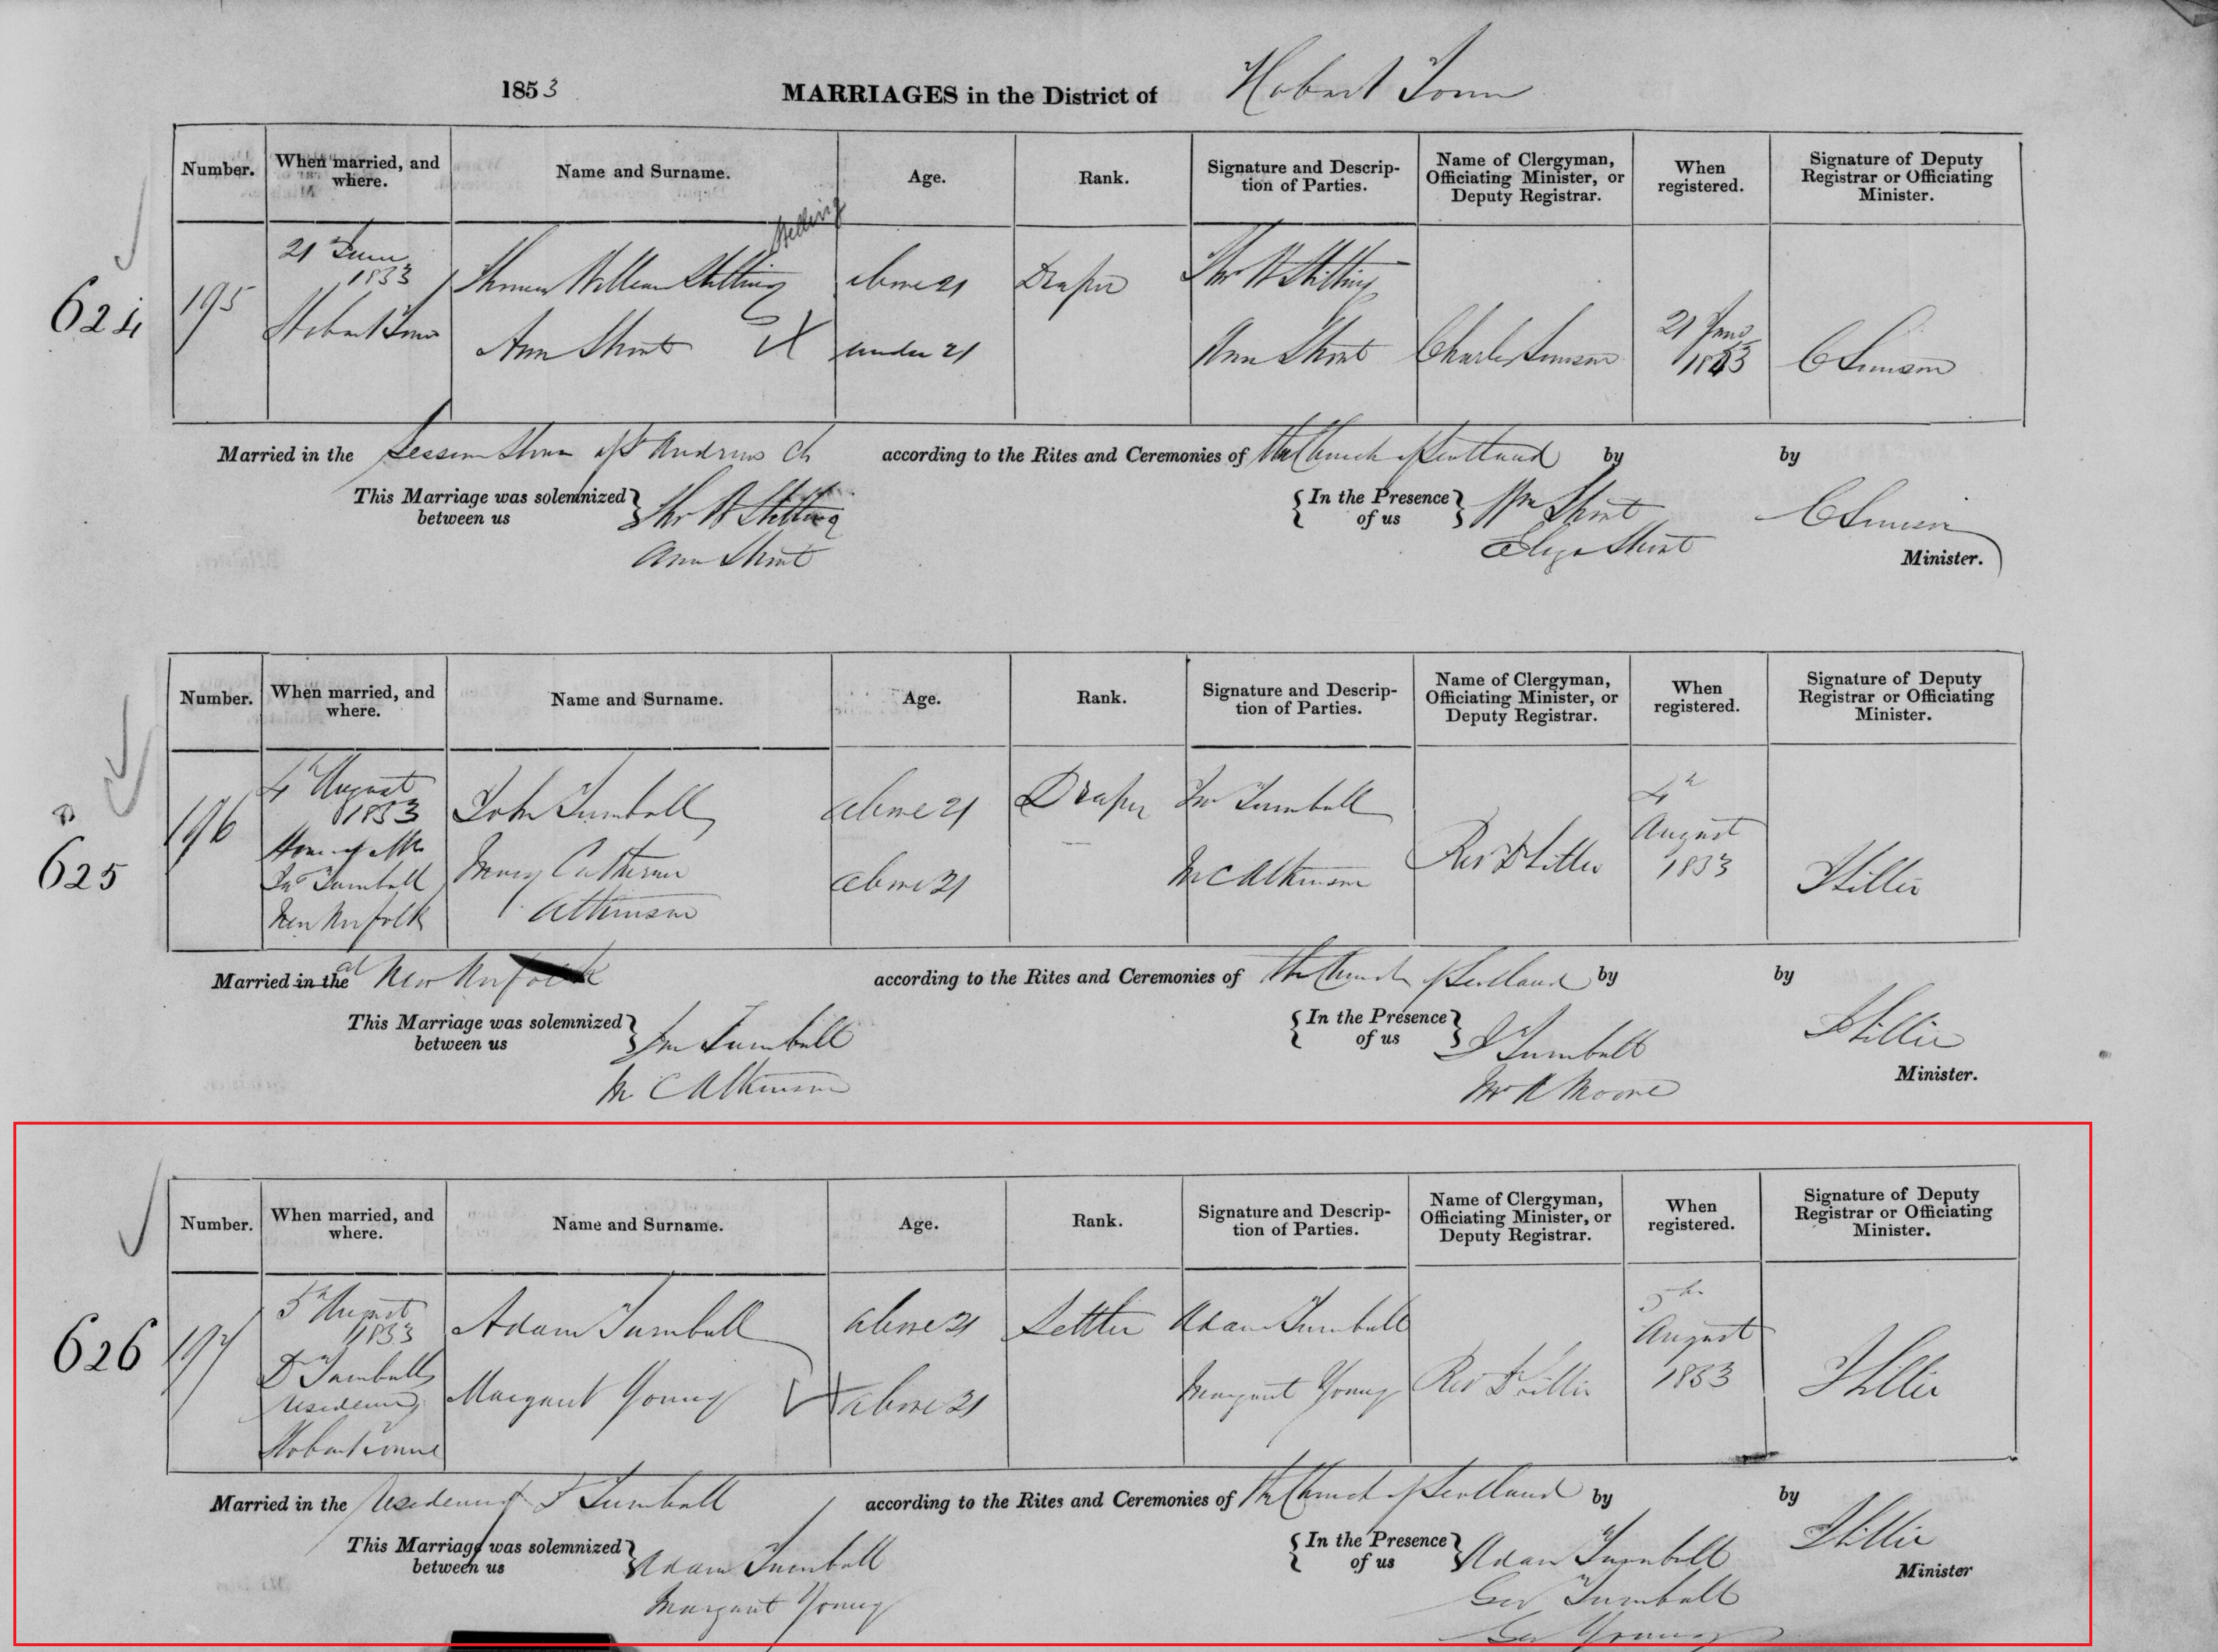 1853 MARRIAGES in the District of Hobart Town
Number. When married, and where. Name and Surname. Age. Rank. Signature and Descrip-tion of Parties. Name of Clergyman, Officiating Minister, or Deputy Registrar. When registered. Signature of Deputy Registrar or Officiating Minister.
624
195
21 June
1853
Hobart Town
Thomas William Stilling
Stelling
above 21
Draper
Tho W Stilling
Ann Short
X
under 21
Ann Short
Charles Simson
21 June
1853
C Simson
Married in the Session House of St Andrews Ch according to the Rites and Ceremonies of the Church of Scotland by by
This Marriage was solemnized between us
Tho W Stilling
Ann Short
In the Presence of us
Wm Short
Eliza Short
C Simson
Minister.
Number. When married, and where. Name and Surname. Age. Rank. Signature and Descrip-tion of Parties. Name of Clergyman, Officiating Minister, or Deputy Registrar. When registered. Signature of Deputy Registrar or Officiating Minister.
625
196
4th August
1853
House of Mr
Jno Turnbull
New Norfolk
John Turnbull
above 21
Draper
Jno Turnbull
Mary Catherine
Atkinson
above 21
M C Atkinson
Rev D Lillie
4th
August
1853
J Lillie
Married in the at New Norfolk according to the Rites and Ceremonies of the Church of Scotland by by
This Marriage was solemnized between us
Jno Turnbull
M C Atkinson
In the Presence of us
Turnbull
Moore
J Lillie
Minister.
Number. When married, and where. Name and Surname. Age. Rank. Signature and Descrip-tion of Parties. Name of Clergyman, Officiating Minister, or Deputy Registrar. When registered. Signature of Deputy Registrar or Officiating Minister.
626
197
5th August
1853
Dr Turnbulls
residence
Hobart Towne
Adam Turnbull
above 21
Settler
Adam Turnbull
Margaret Young
above 21
Margaret Young
Rev D Lillie
5th
August
1853
J Lillie
Married in the residence of Dr Turnbull according to the Rites and Ceremonies of the Church of Scotland by by
This Marriage was solemnized between us
Adam Turnbull
Margaret Young
In the Presence of us
Adam Turnbull
Geo Turnbull
Geo Young
J Lillie
Minister